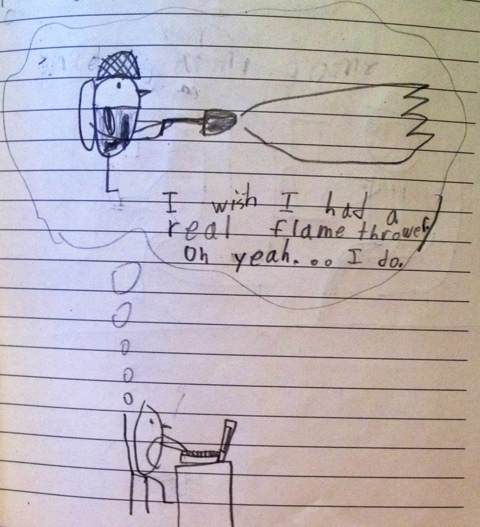 I wish I had a
real flame thrower,
Oh yeah... I do.